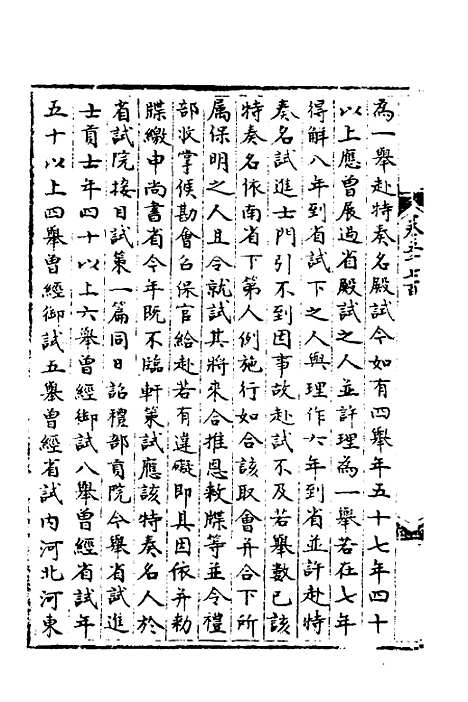 為一舉赴特奏名殿試令如有四舉年五十七年四十
以上應曾展過省殿試之人並許理為一舉若在七年
得解八年到省試下之人與理作六年到省並許赴特
奏名試進士門引不到因事故赴試不及若舉數已該
特奏名依南省下第人例施行如合該取會并合下所
属保明之人且令就試其將來合推恩敕牒等並令禮
部收掌候勘會召保官給赴若有違礙即具因依并勑
牒繳申尚書省今年既不臨軒策試應該特奏名人於
省試院接目試策一篇同日詔禮部貢院今舉省試進
士貢士年四十以上六舉曾經御試八舉曾經省試年
五十以上四舉曾經御試五舉曾經省試內河北河東